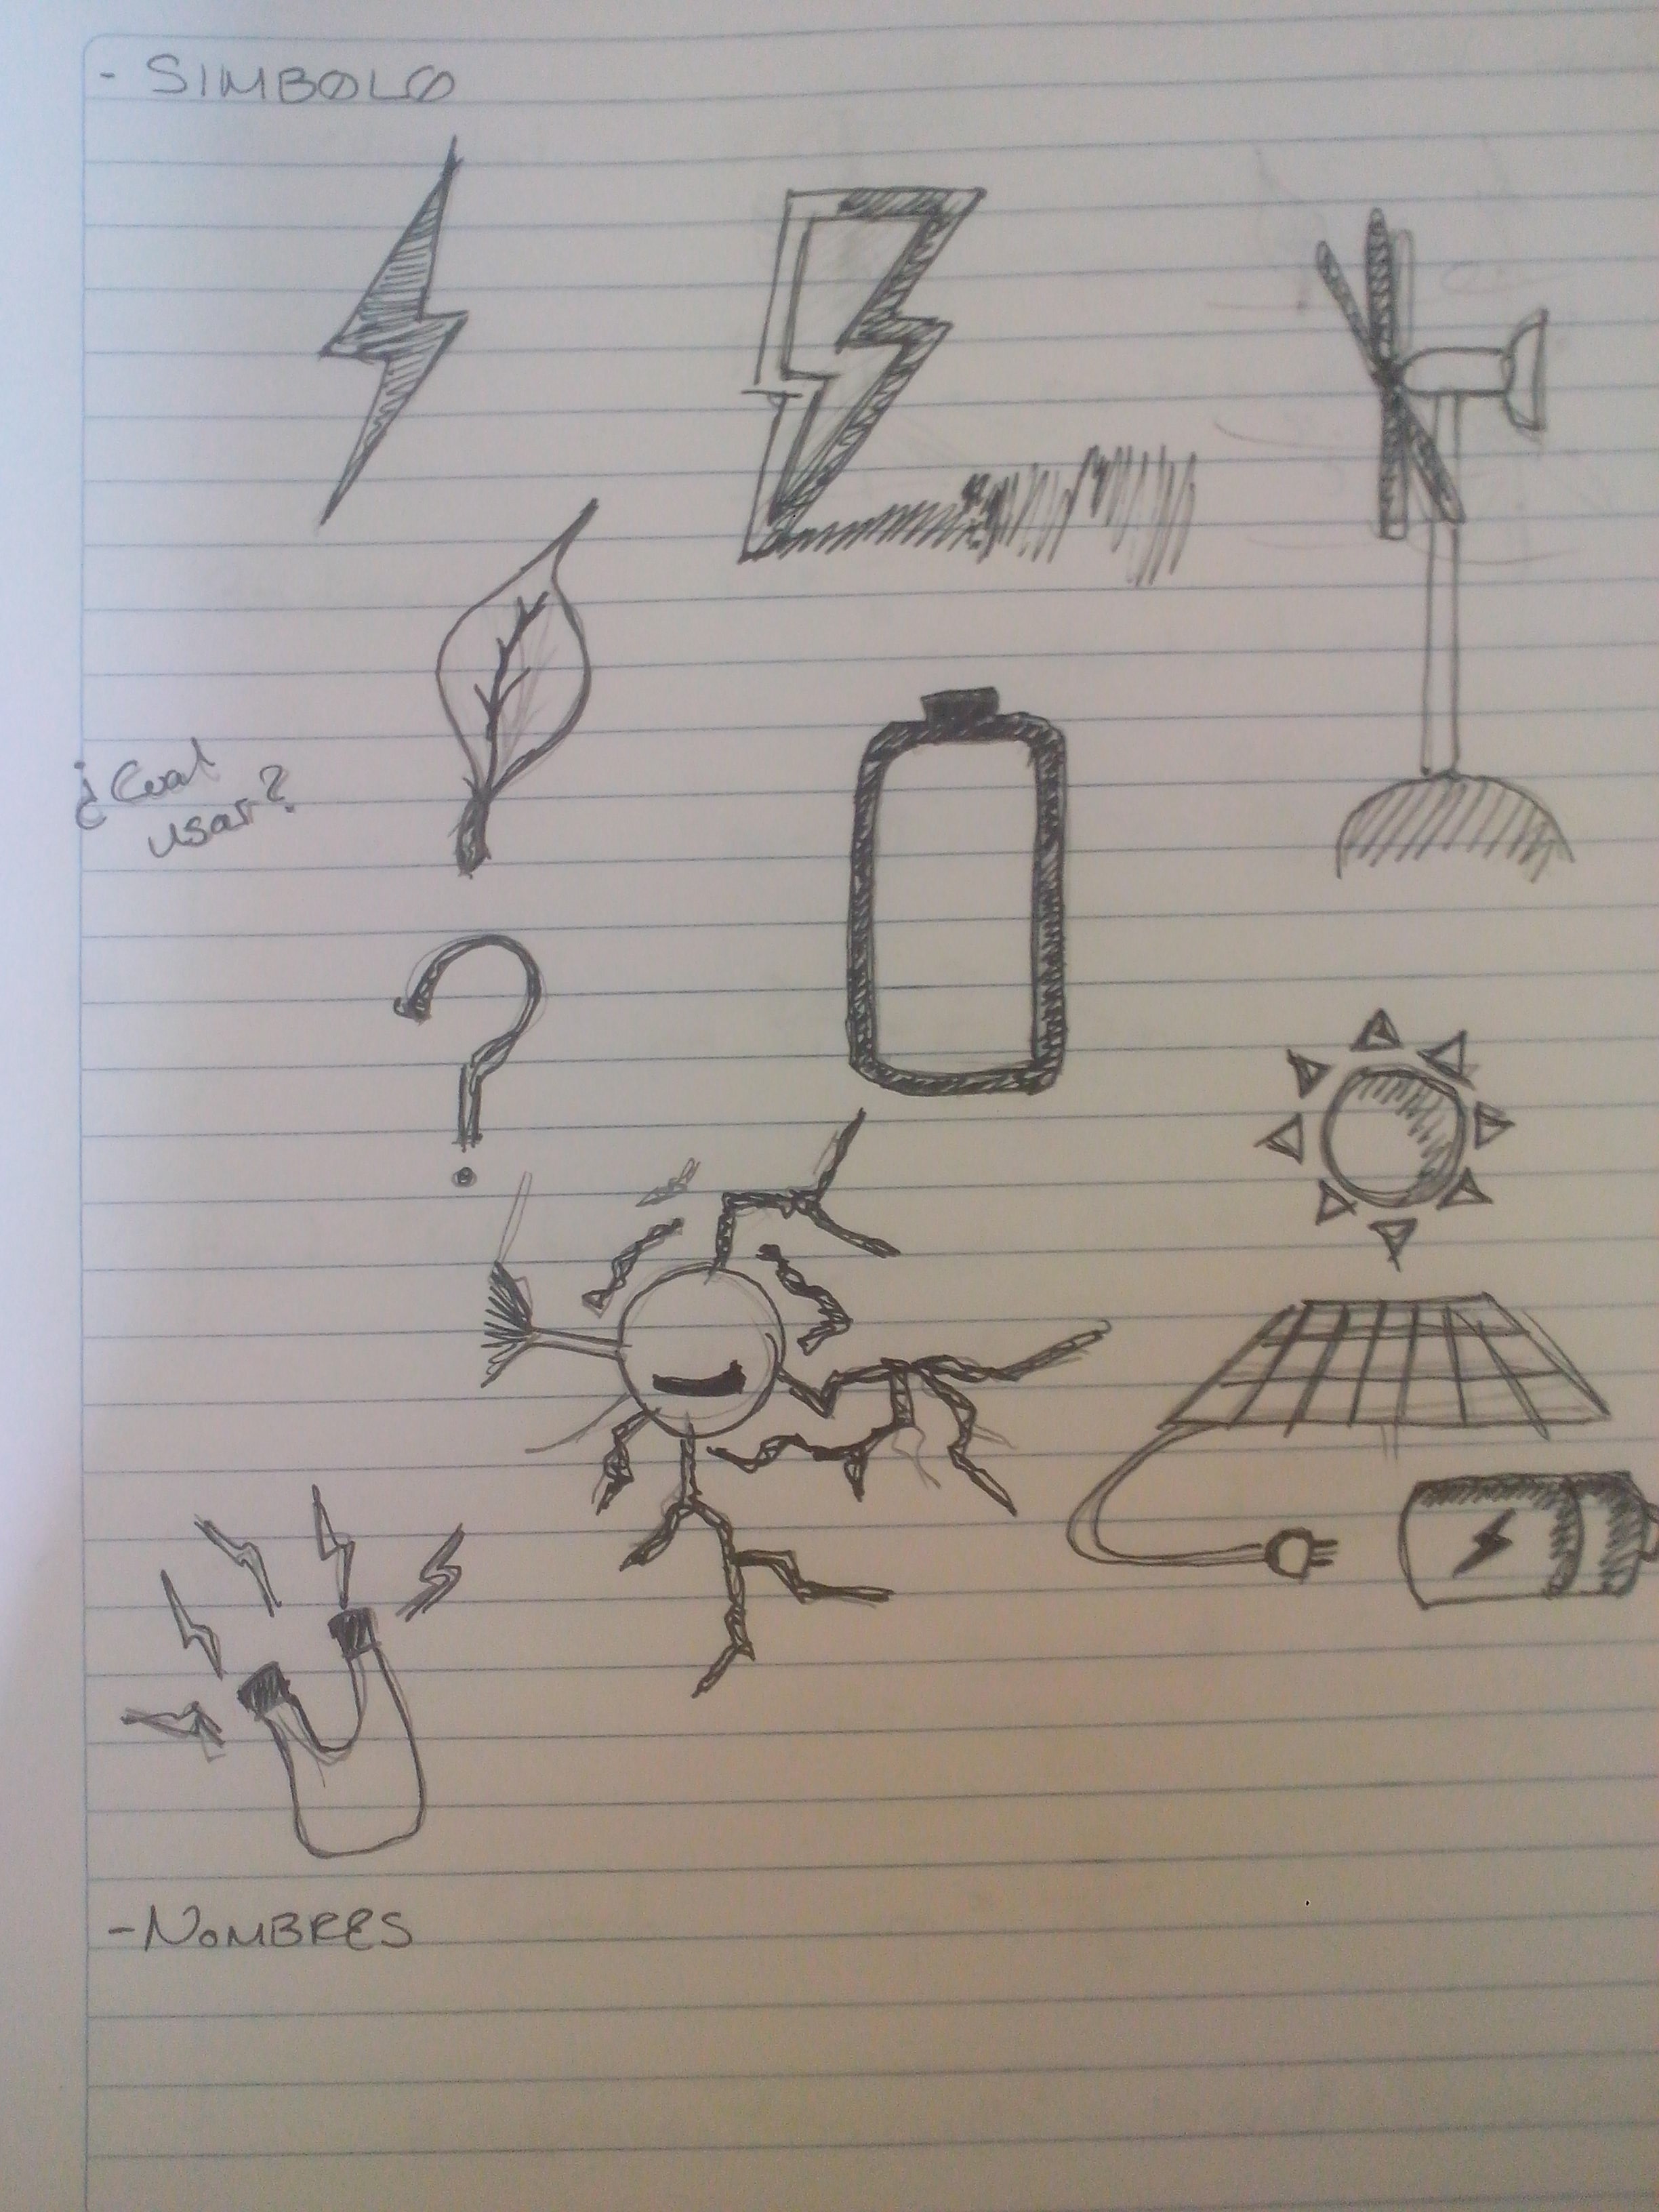 - SIMBOLO
¿Cual
usar?
?
- NOMBRES